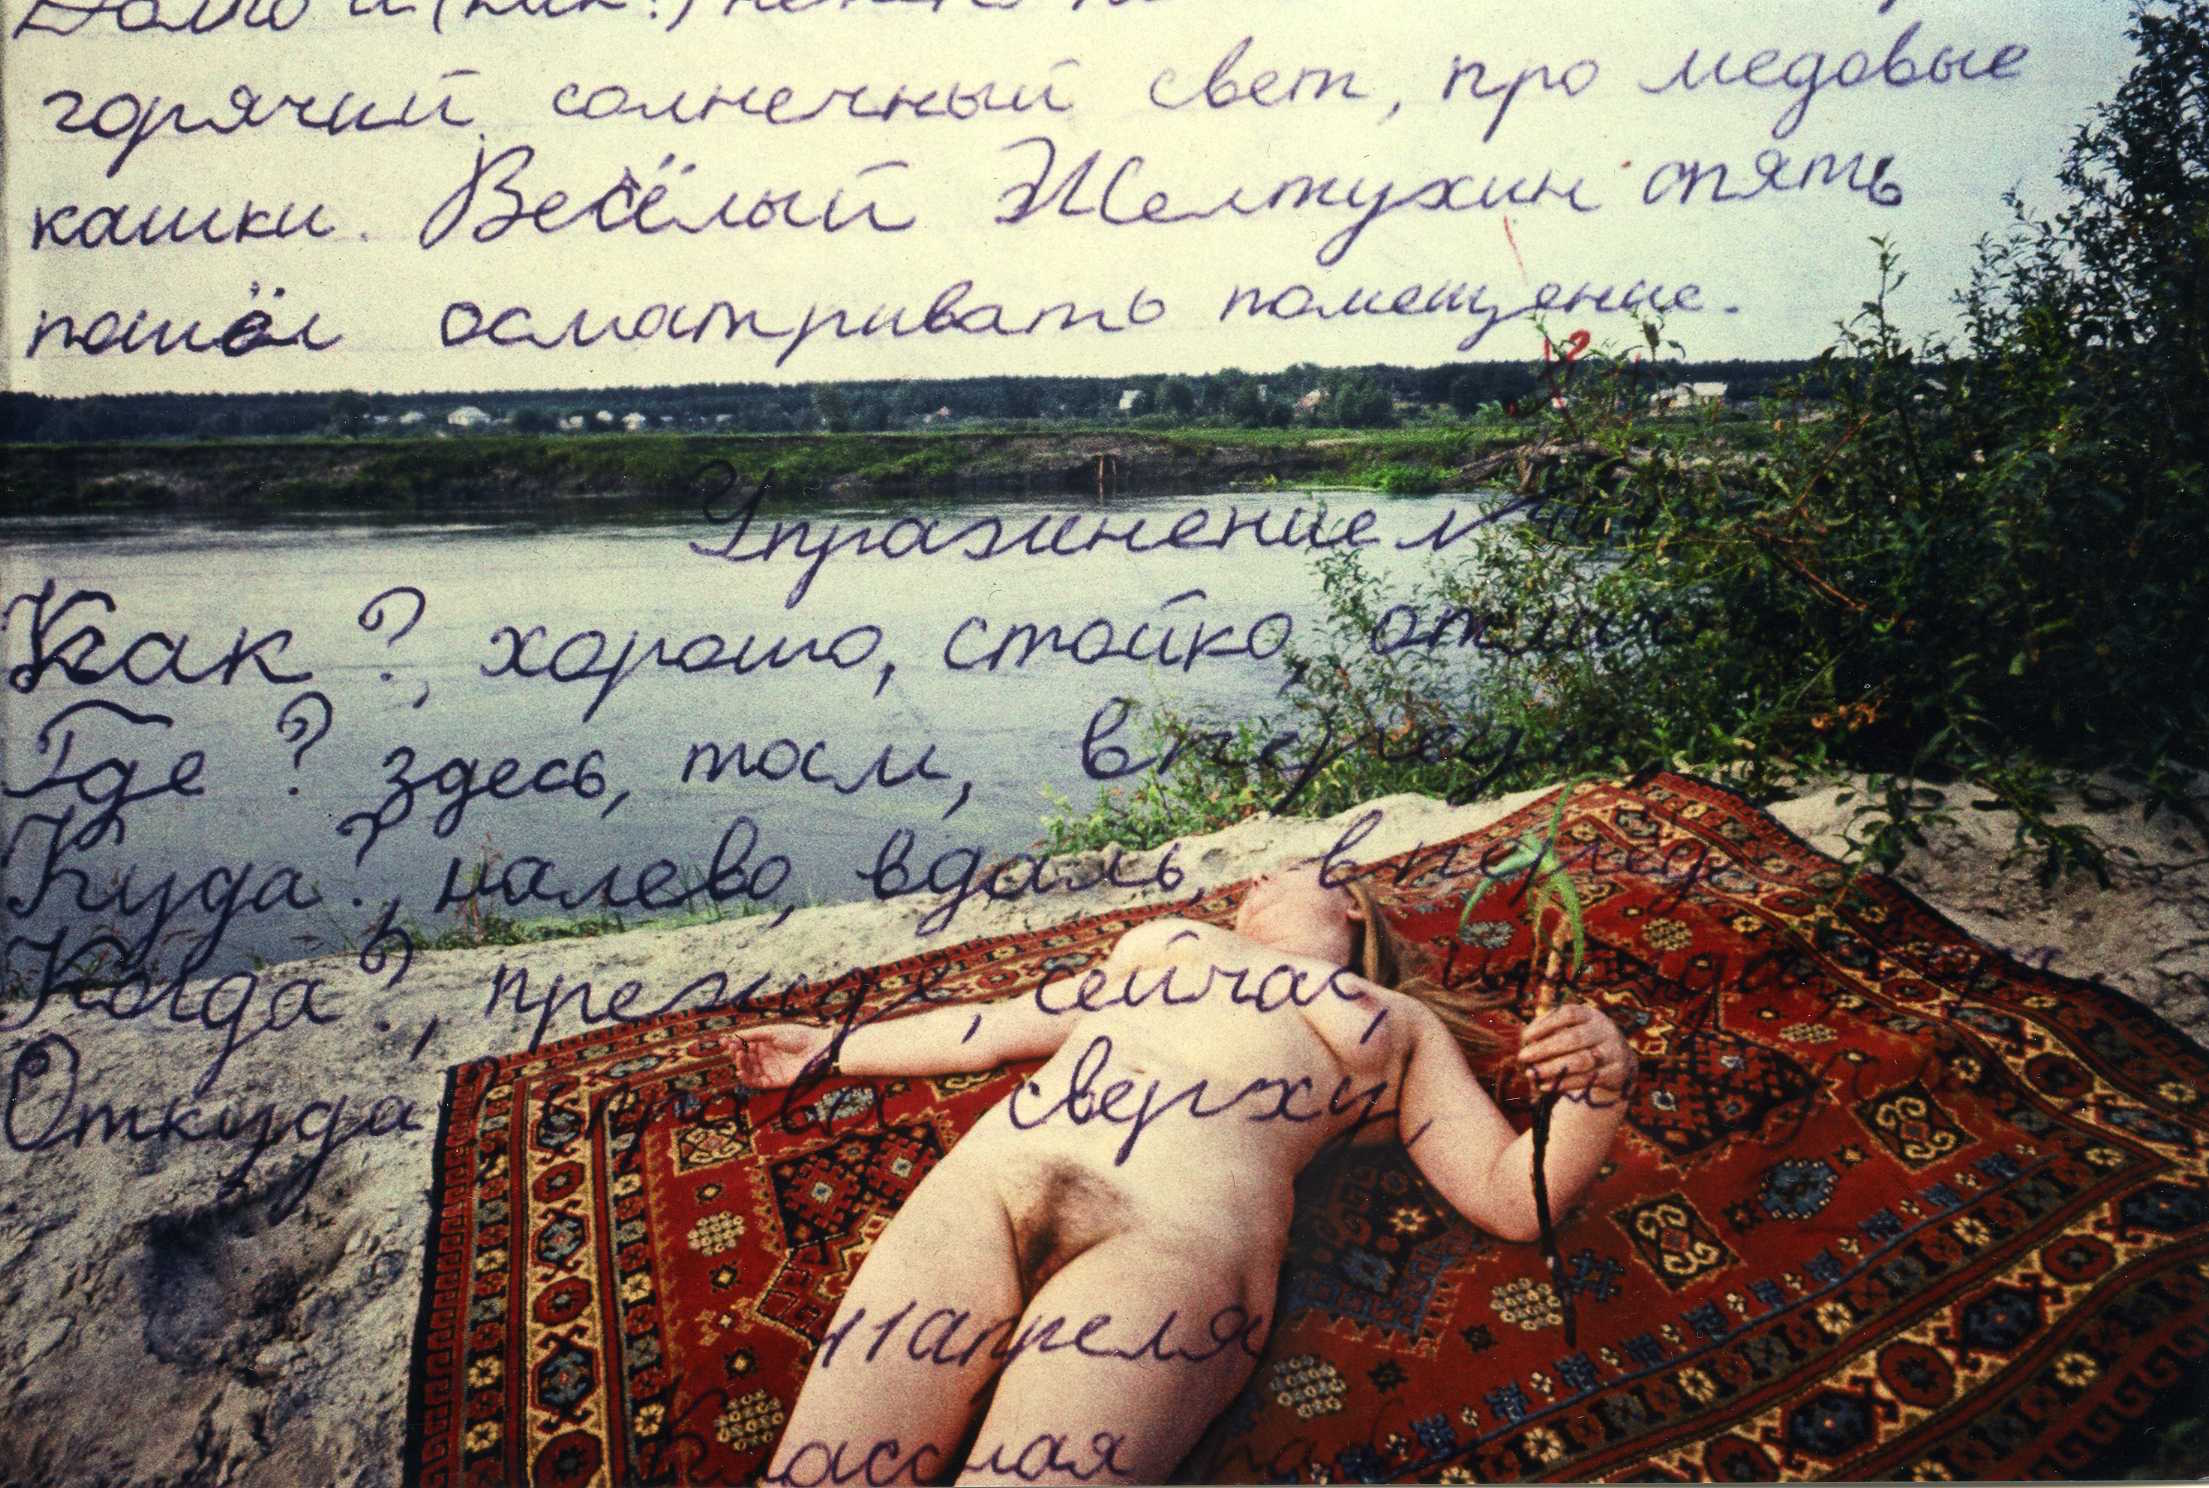 горячий солнечный свет, про медовые
кашки. Весёлый Желтухин опять
пошёл осматривать помещение.
Упражнение
Как?, хорошо, стойко,
Где? здесь, там, впереди
Куда?, налево, вдаль, вперёд
Когда?, прежде, сейчас,
Откуда? справа сверху,
11 апреля
Классная